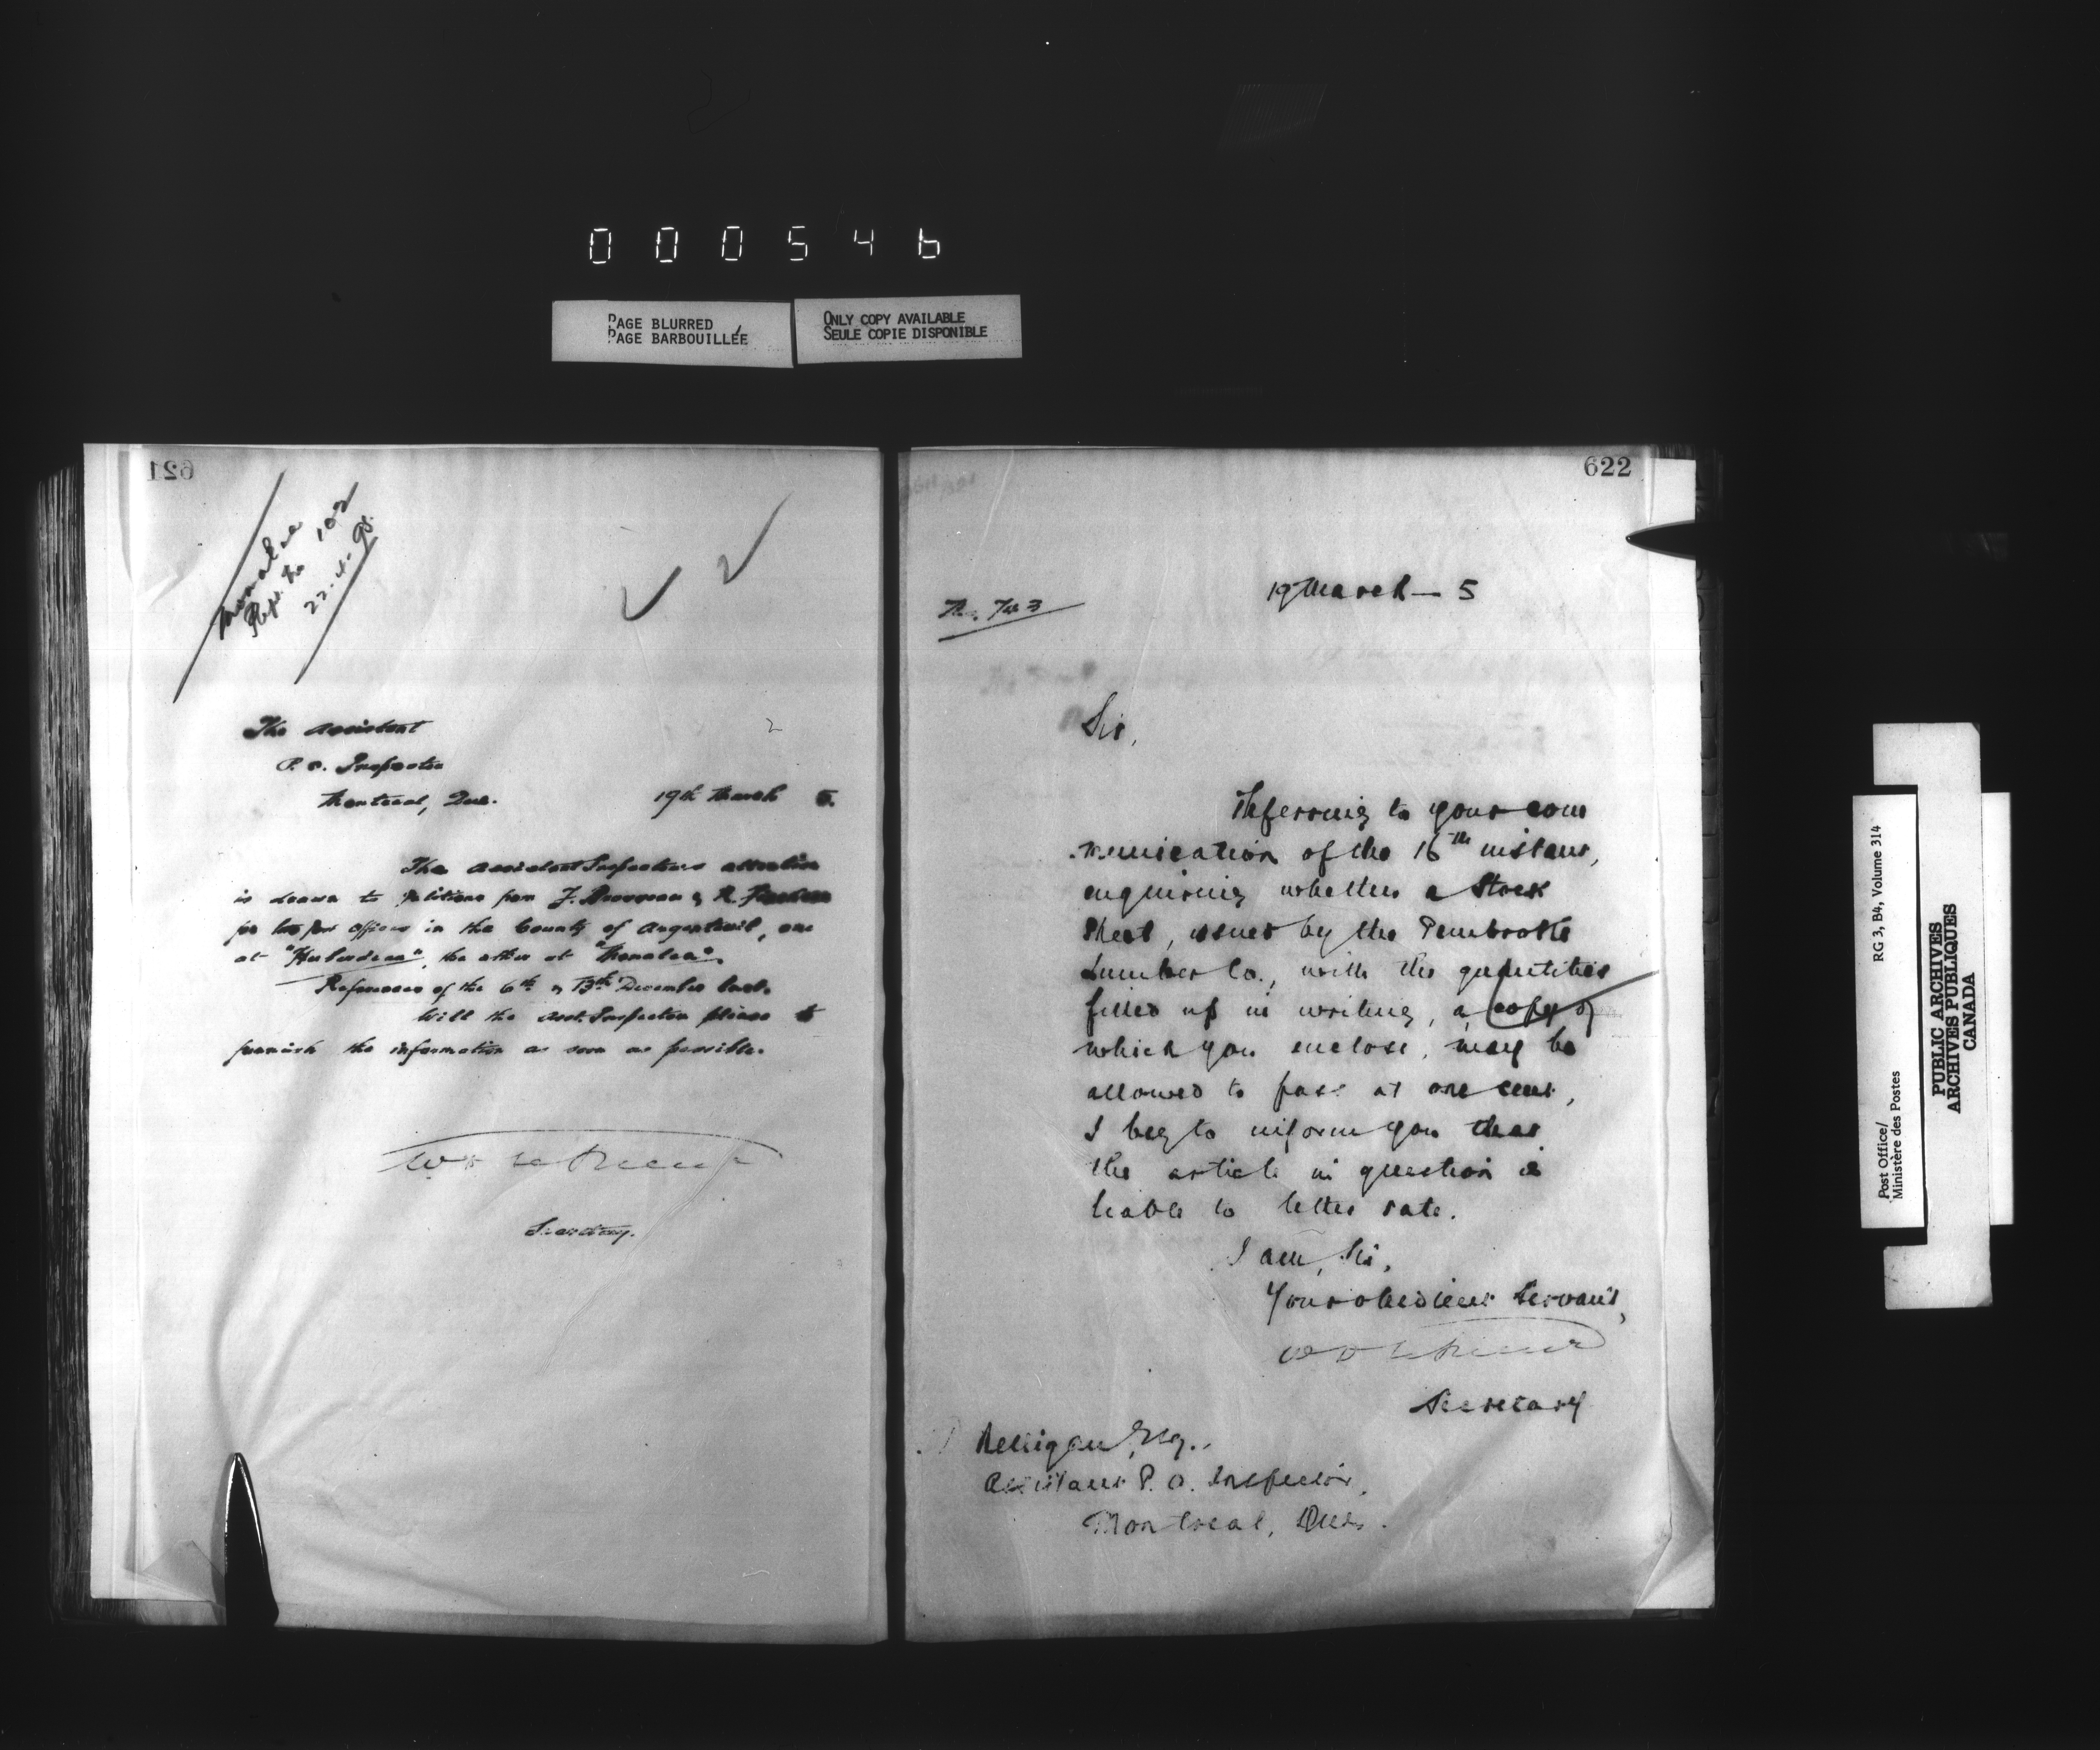 000546
PAGE BLURRED
PAGE BARBOUILLÉE
ONLY COPY AVAILABLE
SEULE COPIE DISPONIBLE
621
Repl. to 102
22.4.95.
The Assistant
P. O. Inspector
Montreal, Que. 19th March 5.
The Assistant Inspectors attention
is drawn to petitions from J. & R.
for two Post Offices in the County of Argenteuil, one
at " ", the other at " ".
References of the 6th & 13th December last.
Will the Asst. Inspector please to
furnish the information as soon as possible.
Secretary.
622
19 March — 5
Sir,
Referring to your com
munication of the 16th instant,
enquiring whether a Stock
Sheet, issued by the Pembroke
Lumber Co., with the quantities
filled up in writing, a copy of
which you enclose, may be
allowed to pass at one cent,
I beg to inform you that
the article in question is
liable to letter rate.
I am, Sir,
Your obedient Servant,
Secretary
Esq.,
Assistant P. O. Inspector,
Montreal, Que.
Post Office/
Ministère des Postes
RG 3, B4, Volume 314
PUBLIC ARCHIVES
ARCHIVES PUBLIQUES
CANADA